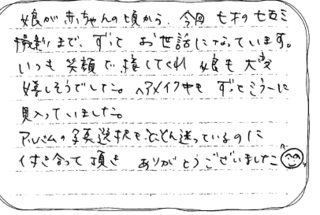 娘が赤ちゃんの頃から、今回 七才の七五三
撮影まで、ずっと お世話になっています。
いつも 笑顔で 接してくれ 娘も 大変
嬉しそうでした。ヘアメイク中も ずっとミラーに
見入っていました。
アルバムの写真選択も どんどん迷っているのに
付き合って頂き ありがとうございました